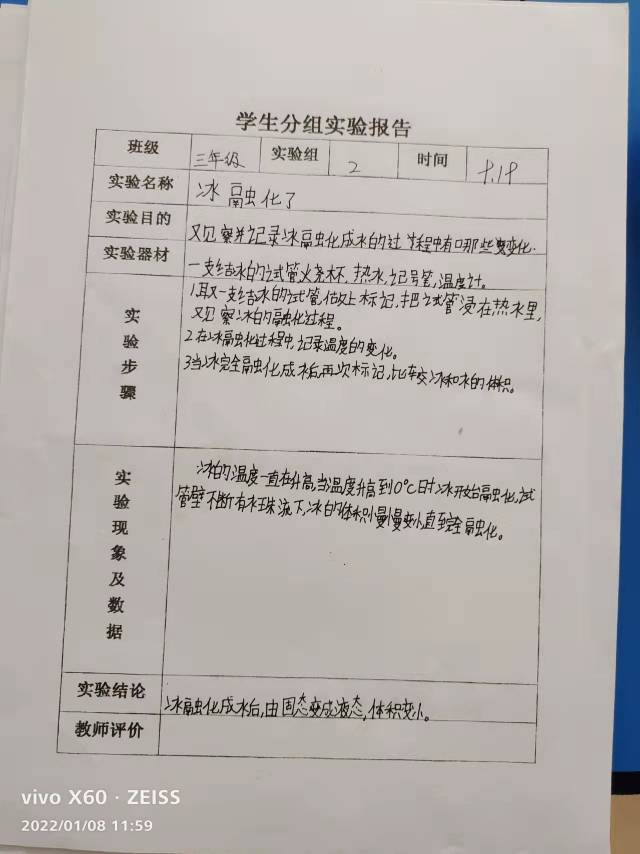 学生分组实验报告
班级 三年级 实验组 2 时间 9.19
实验名称 冰融化了
实验目的 观察并记录冰融化成水的过程中有哪些变化.
实验器材 一支结冰的试管,烧杯,热水,记号管,温度计。
实验步骤
1.取一支结冰的试管,做上标记,把试管浸在热水里,
观察冰的融化过程。
2.在冰融化过程中,记录温度的变化。
3当冰完全融化成水后,再次标记,比较冰和水的体积。
实验现象及数据
冰的温度一直在升高,当温度升高到0°C时冰开始融化,试
管壁不断有水珠流下,冰的体积慢慢变小直至完全融化。
实验结论 冰融化成水后,由固态变成液态,体积变小。
教师评价
vivo X60 · ZEISS
2022/01/08 11:59